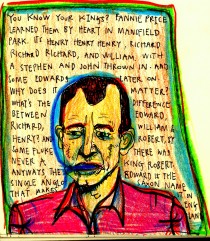 YOU KNOW YOUR KINGS? FANNIE PRICE
LEARNED THEM BY HEART IN MANSFIELD
PARK. IT'S HENRY HENRY HENRY, RICHARD
RICHARD RICHARD, AND WILLIAM, WITH
A STEPHEN AND JOHN THROWN IN. AND
SOME EDWARDS LATER ON.
WHY DOES IT MATTER?
WHAT'S THE DIFFERENCE
BETWEEN EDWARD,
RICHARD, WILLIAM &
HENRY? AND ROBERT, BY
SOME FLUKE THERE WAS
NEVER A KING ROBERT.
ANYWAYS THE EDWARD IS THE
SINGLE ANGLO SAXON NAME
THAT MAKES IT IN
ENG
LAN